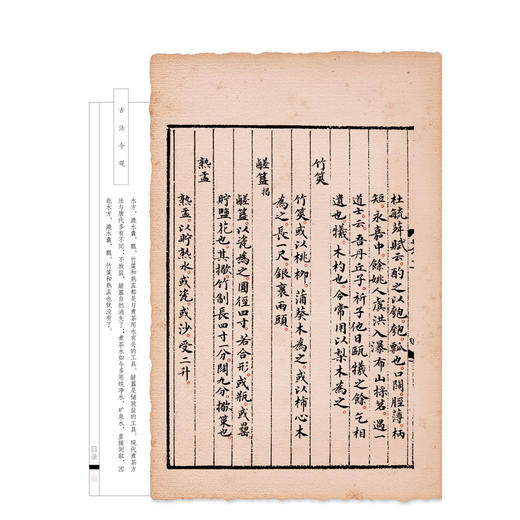 杜毓荈賦云酌之以匏匏瓢也口闊脛薄柄
短永嘉中餘姚人虞洪入瀑布山採茗遇一
道士云吾丹丘子祈子他日甌犧之餘乞相
遺也犧木杓也今常用以梨木為之
竹筴
竹筴或以桃柳蒲葵木為之或以柿心木
為之長一尺銀裹兩頭
鹺簋揭
鹺簋以瓷為之圓徑四寸若合形或瓶或罍
貯鹽花也其揭竹制長四寸一分闊九分揭策也
熟盂
熟盂以貯熟水或瓷或沙受二升
古法今观
水方、漉水囊、瓢、竹筴和熟盂都是与煮茶用水有关的工具。鹾簋是储放盐的工具。现代煮茶方
法与唐代多有不同：不放盐，鹾簋自然消失了；煮茶水如今多用纯净水、矿泉水，直接倒取，因
此水方、漉水囊、瓢、竹筴和熟盂也就没有了。
目录